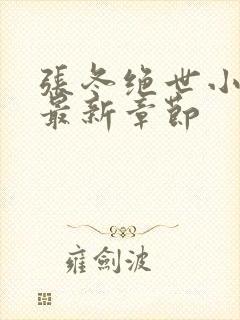 張冬绝世小
最新章節
雍劍波